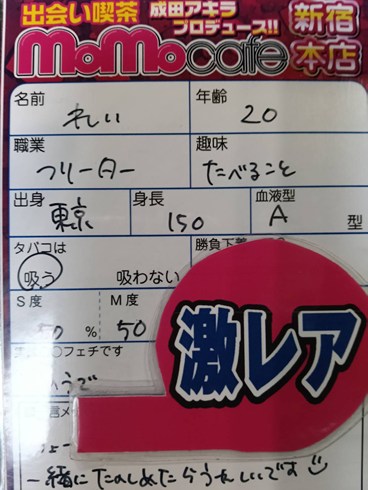 出会い喫茶 成田アキラ プロデュース!! 新宿本店
MoMocafe
名前 れい 年齢 20
職業 フリーター 趣味 たべること
出身 東京 身長 150 血液型 A 型
タバコは 吸う 吸わない 勝負下着
S度 50 % M度 50
フェチです
激レア
一緒にたのしめたらうれしいです